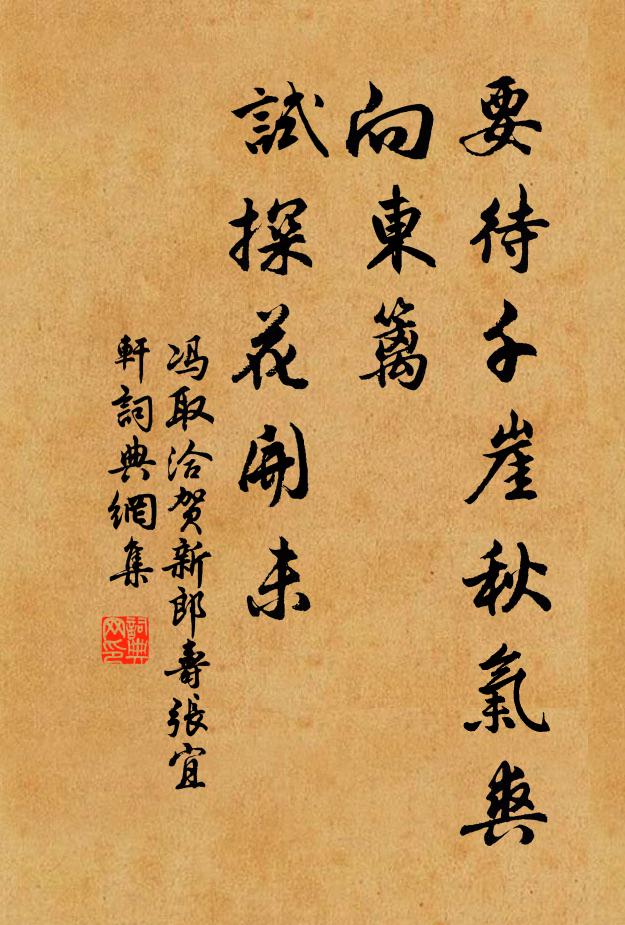 要待千崖秋氣爽
向東籬
試探花開未
冯取洽賀新郎壽張宜
軒詞典網集
詞典
网印